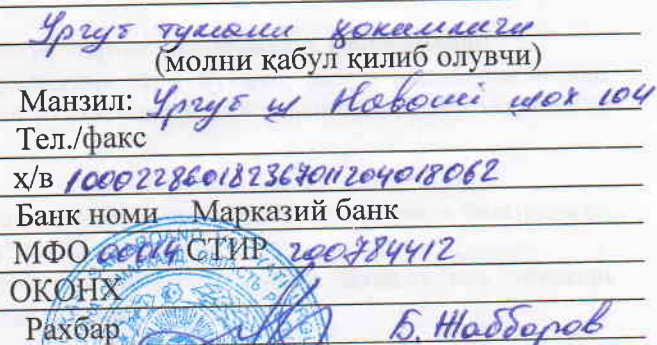 Ургут тумани ҳокимлиги
(молни қабул қилиб олувчи)
Манзил: Ургут ш Навоий шох 104
Тел./факс
х/в 100022860182367011204018062
Банк номи Марказий банк
МФО 00014 СТИР 200784412
ОКОНХ
Рахбар Б. Жабборов